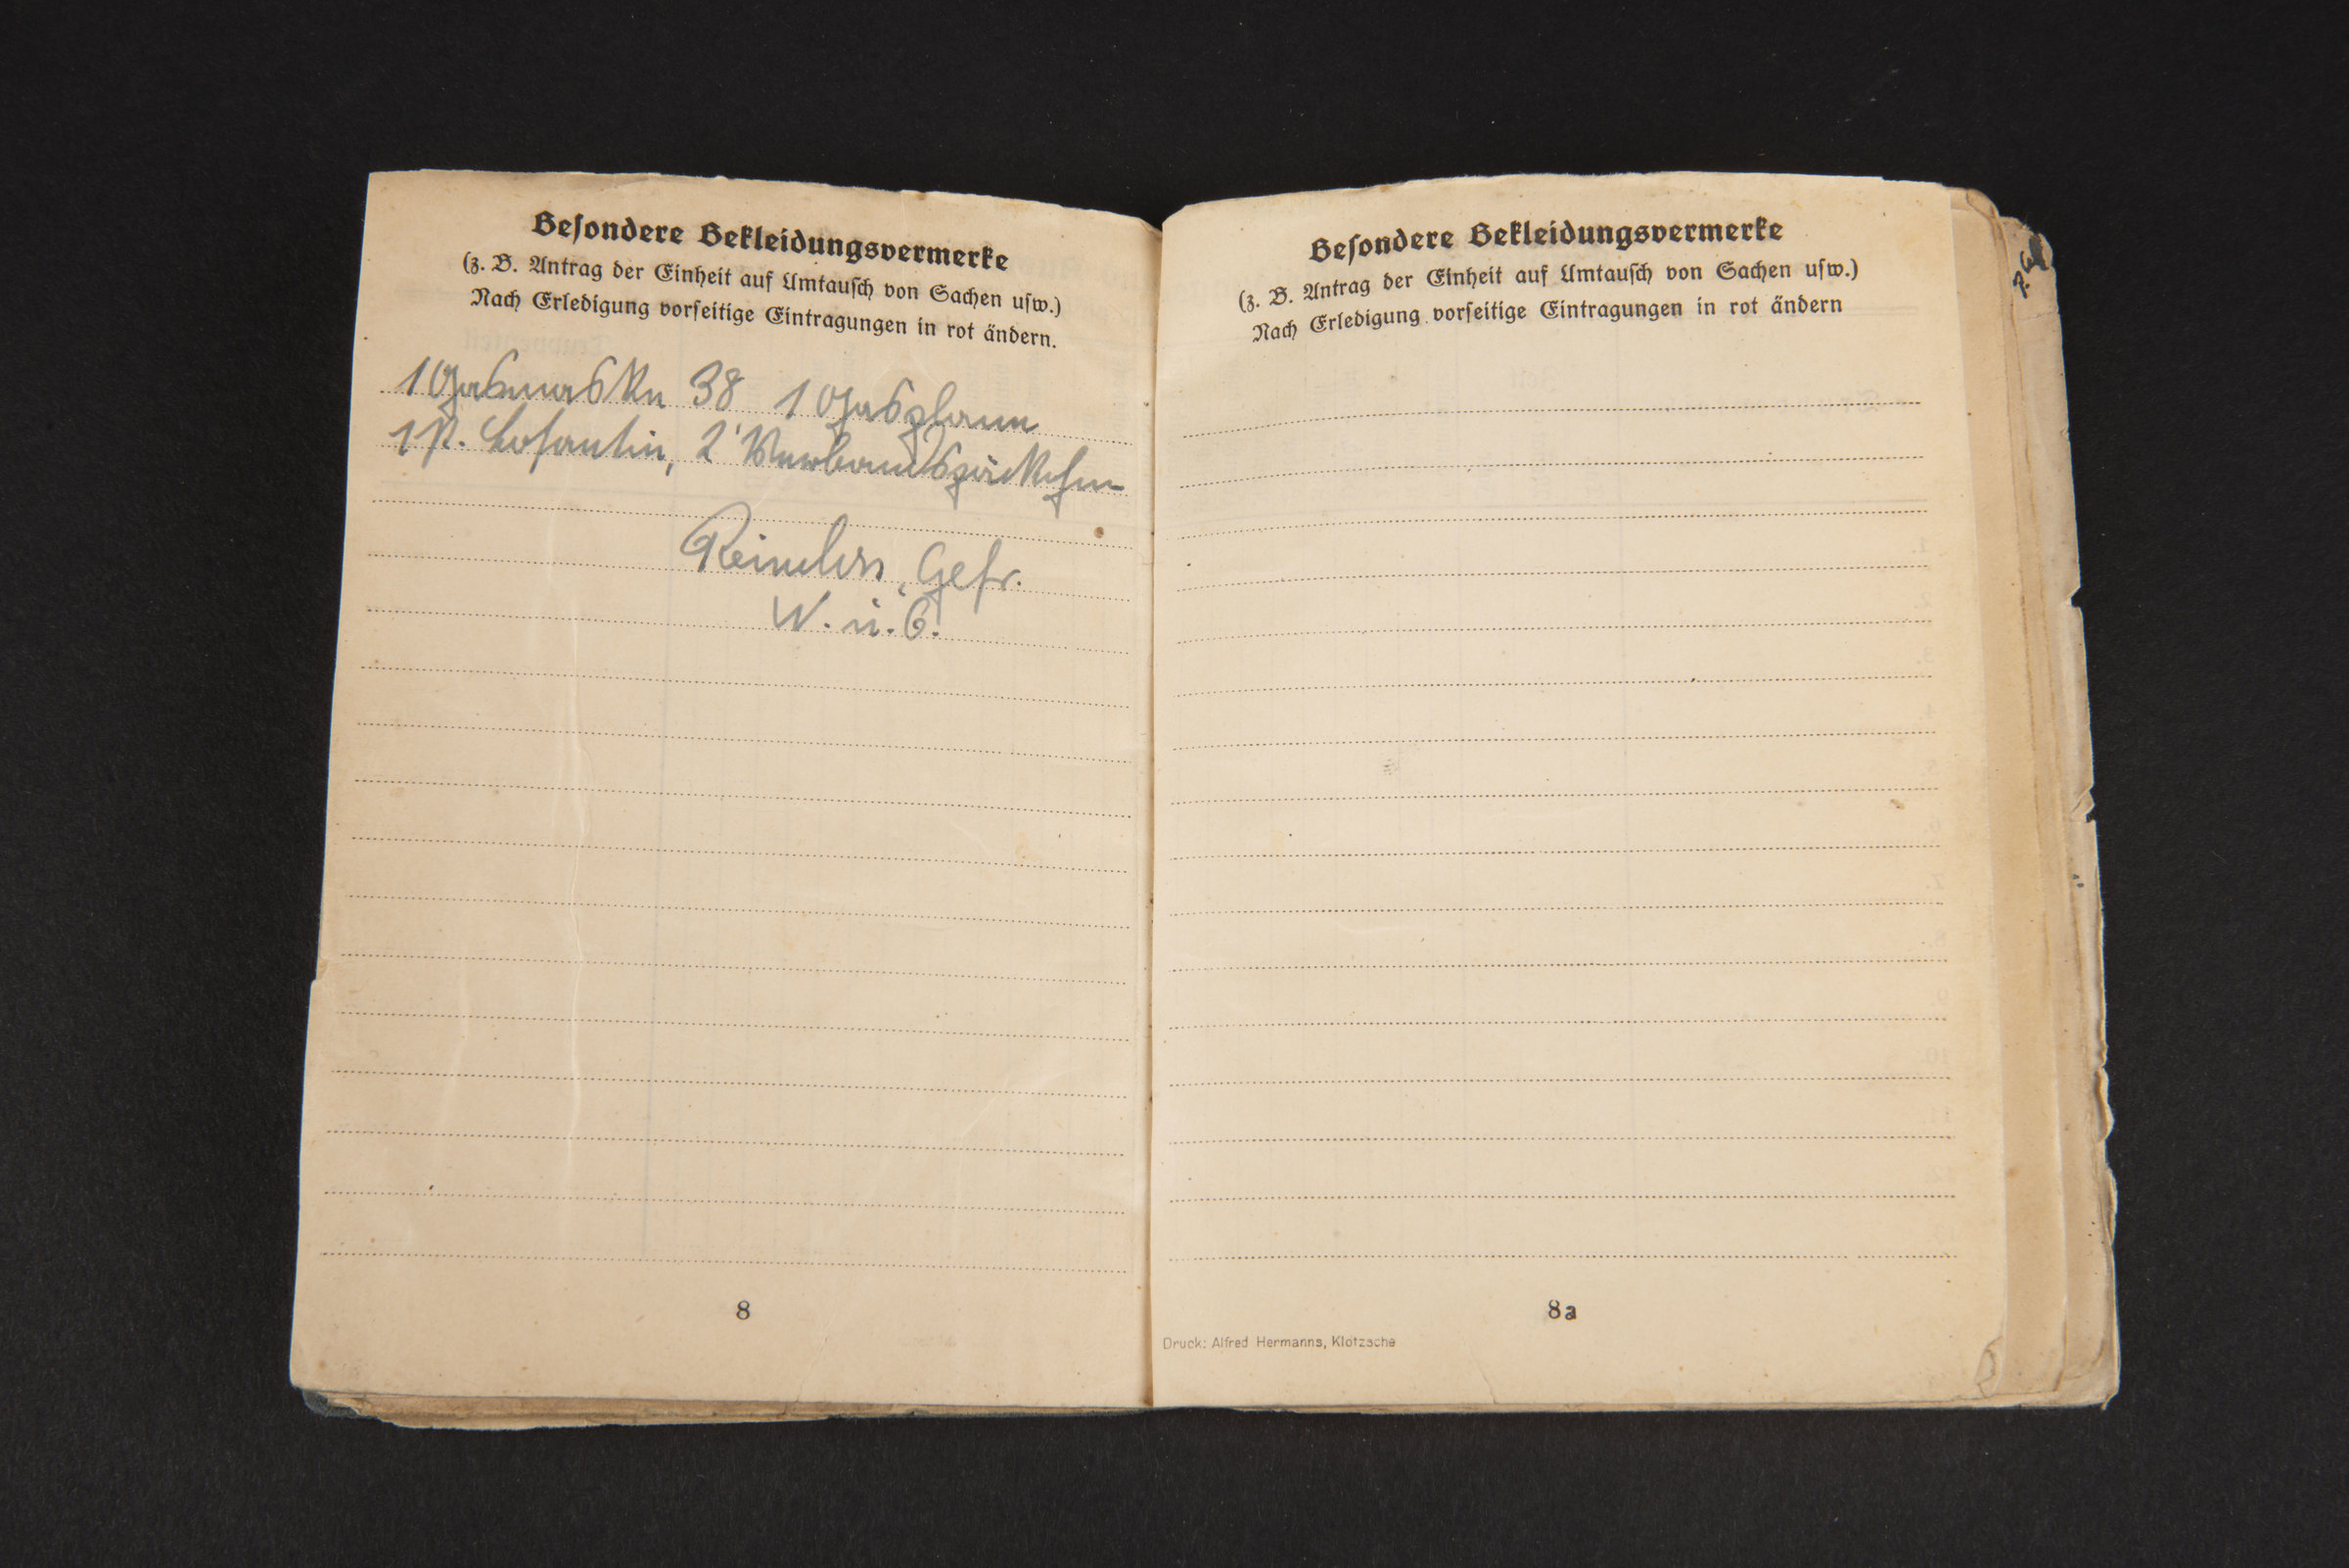 Besondere Bekleidungsvermerke
(z. B. Antrag der Einheit auf Umtausch von Sachen usw.)
Nach Erledigung vorseitige Eintragungen in rot ändern.
1 Gasmaske 38 1 Gasplane
1 P. Losantin, 2 Verbandspäckchen
Gefr.
W. u. G.
8
Besondere Bekleidungsvermerke
(z. B. Antrag der Einheit auf Umtausch von Sachen usw.)
Nach Erledigung vorseitige Eintragungen in rot ändern
8a
Druck: Alfred Hermanns, Klotzsche